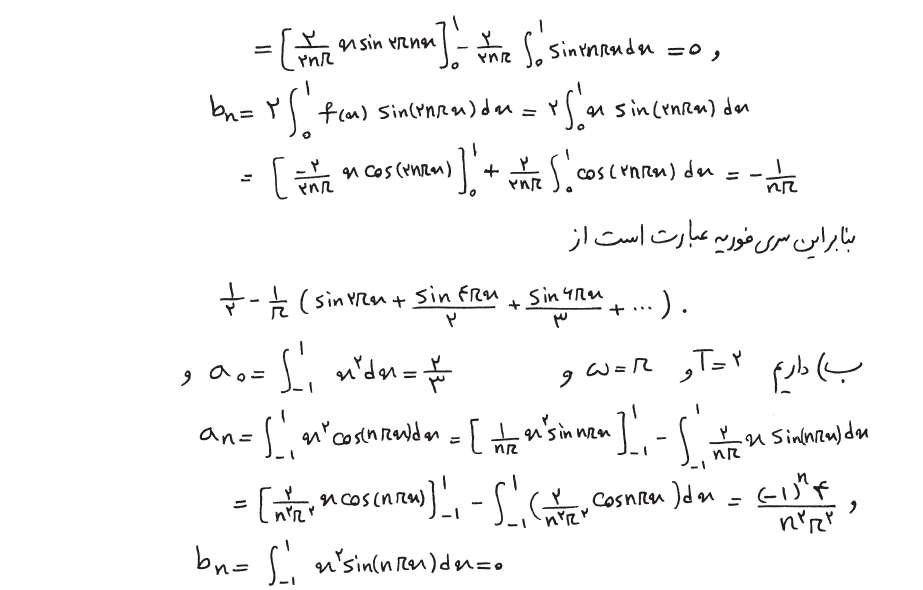 = [ ۲/۲nπ x sin ۲πnx ]₀¹ - ۲/۲nπ ∫₀¹ sin۲nπx dx = ۰ و
bn = ۲∫₀¹ f(x) sin(۲nπx) dx = ۲∫₀¹ x sin(۲nπx) dx
= [ -۲/۲nπ x cos(۲nπx) ]₀¹ + ۲/۲nπ ∫₀¹ cos(۲nπx) dx = - ۱/nπ
بنابراین سری فوریه عبارت است از
۱/۲ - ۱/π ( sin۲πx + sin ۴πx/۲ + sin ۶πx/۳ + ... ) .
ب) داریم T=۲ و ω=π و a₀ = ∫₋₁¹ x² dx = ۲/۳ و
an = ∫₋₁¹ x² cos(nπx) dx = [ ۱/nπ x² sin nπx ]₋₁¹ - ∫₋₁¹ ۲/nπ x sin(nπx) dx
= [ ۲/n²π² x cos(nπx) ]₋₁¹ - ∫₋₁¹ ( ۲/n²π² cos nπx ) dx = (-۱)ⁿ ۴/n²π² ,
bn = ∫₋₁¹ x² sin(nπx) dx = ۰